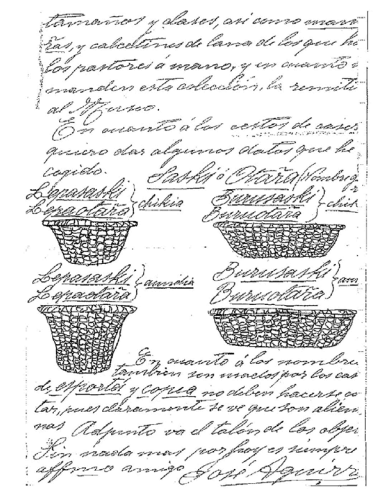 tamaños y clases, así como
ñas, y calcetines de lana de los que
los pastores á mano, y en cuanto
manden esta colección, la remiti
al Museo.
En cuanto á los cestos de
quiero dar algunos datos que he
cogido. Saski ó Otaña (Nombre
Lepasaski
Lepaotaña } chikia
Burusaski
Buruotaña } chik
Lepasaski
Lepaotaña } aundia
Burusaski
Buruotaña } aun
En cuanto á los nombre
también son usados por los cas
de, esportas y copea no deben hacerse
tar, pues claramente se ve que son
nas Adjunto va el talón de los obje
Sin nada mas por hoy es siempre
affmo amigo José Aguirr